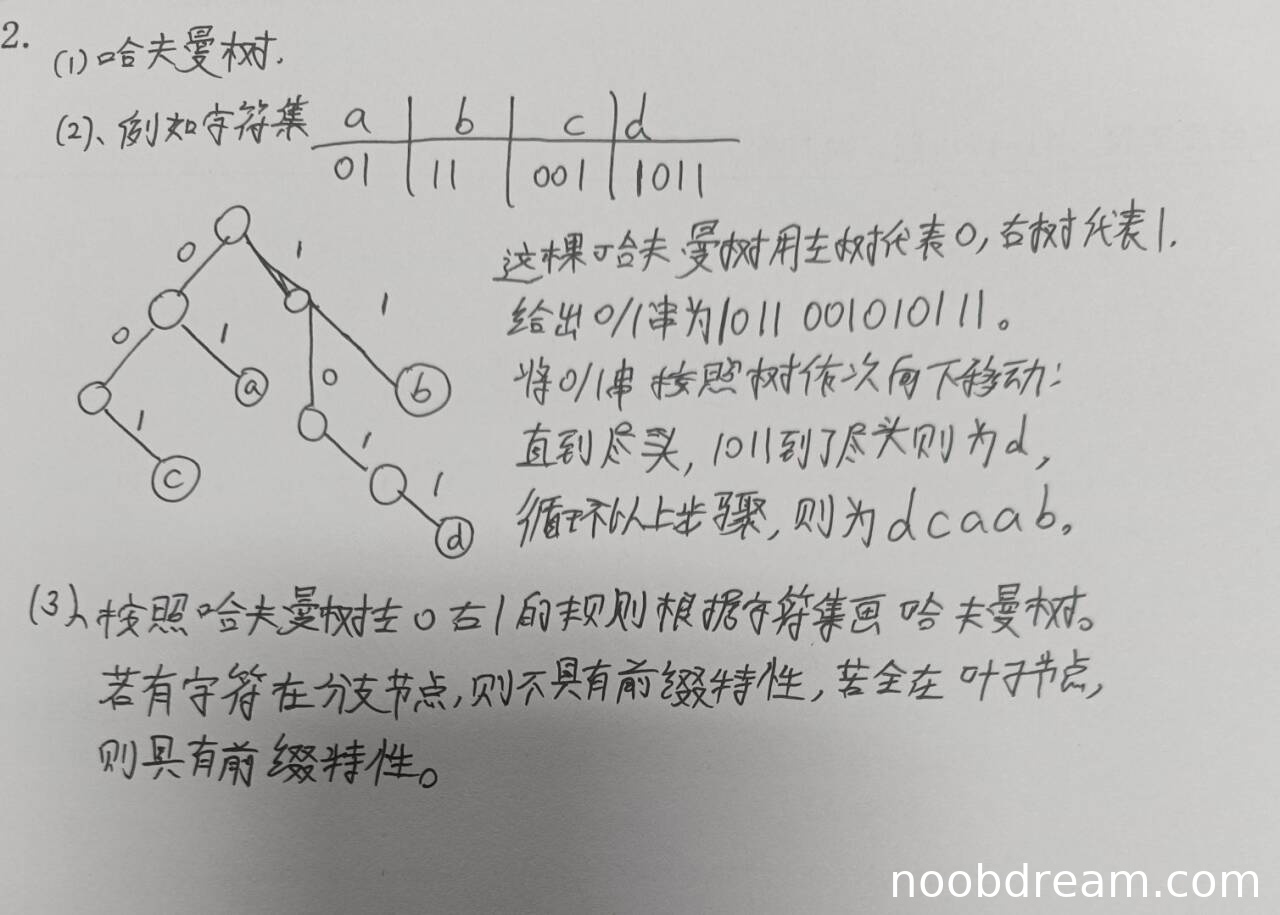 2.
(1)哈夫曼树.
(2)、例如字符集
a b c d
01 11 001 1011
0 1
0 1 1
1 a 0 b
c 1
1
d
这棵哈夫曼树用左树代表0,右树代表1.
给出0/1串为1011 001010111。
将0/1串按照树依次向下移动:
直到尽头,1011到了尽头则为d,
循环以上步骤,则为dcaab。
(3)、按照哈夫曼树左0右1的规则根据字符集画哈夫曼树。
若有字符在分支节点,则不具有前缀特性,若全在叶子节点,
则具有前缀特性。
noobdream.com